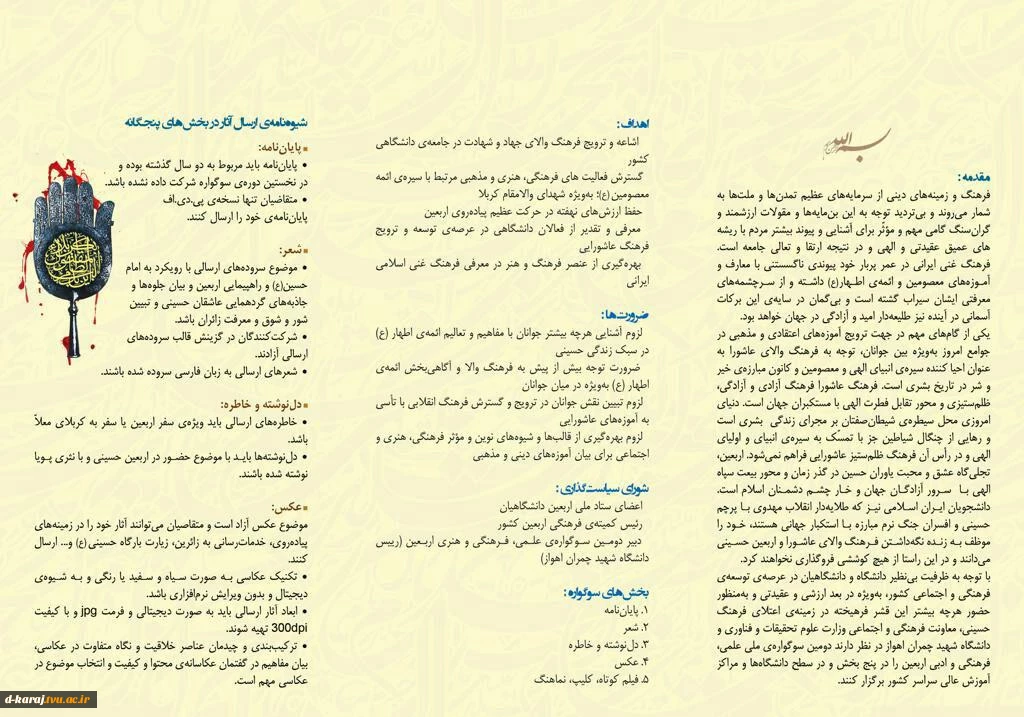 بسم الله
مقدمه:
فرهنگ و زمینه‌های دینی از سرمایه‌های عظیم تمدن‌ها و ملت‌ها به
شمار می‌روند و بی‌تردید توجه به این بن‌مایه‌ها و مقولات ارزشمند و
گران‌سنگ گامی مهم و مؤثر برای آشنایی و پیوند بیشتر مردم با ریشه
های عمیق عقیدتی و الهی و در نتیجه ارتقا و تعالی جامعه است.
فرهنگ غنی ایرانی در عمر پربار خود پیوندی ناگسستنی با معارف و
آمـوزه‌های معصومین و ائمه‌ی اطـهار(ع) داشـته و از سـرچشمه‌های
معرفتی ایشان سیراب گشته است و بی‌گمان در سایه‌ی این برکات
آسمانی در آینده نیز طلیعه‌دار امید و آزادگی در جهان خواهد بود.
یکی از گام‌های مهم در جهت ترویج آموزه‌های اعتقادی و مذهبی در
جوامع امروز به‌ویژه بین جوانان، توجه به فرهنگ والای عاشورا به
عنوان احیا کننده سیره‌ی انبیای الهی و معصومین و کانون مبارزه‌ی خیر
و شر در تاریخ بشری است. فرهنگ عاشورا فرهنگ آزادی و آزادگی،
ظلم‌ستیزی و محور تقابل فطرت الهی با مستکبران جهان است. دنیای
امروزی محل سیطره‌ی شیطان‌صفتان بر مجرای زندگی بشری است
و رهایی از چنگال شیاطین جز با تمسک به سیره‌ی انبیای و اولیای
الهی و در رأس آن فرهنگ ظلم‌ستیز عاشورایی فراهم نمی‌شود. اربعین،
تجلی‌گاه عشق و محبت یاوران حسین در گذر زمان و محور بیعت سپاه
الهی بـا سـرور آزادگـان جهان و خـار چشـم دشمـنان اسلام است.
دانشجویان ایـران اسـلامی نیـز که طلایه‌دار انقلاب مهدوی با پرچم
حسینی و افسران جنگ نرم مبارزه بـا استکبار جهانی هستند، خـود را
موظف بـه زنـده نگه‌داشتـن فـرهنگ والای عاشـورا و اربعین حسـینی
می‌دانند و در این راستا از هیچ کوششی فروگذاری نخواهند کرد.
با توجه به ظرفیت بی‌نظیر دانشگاه و دانشگاهیان در عرصه‌ی توسعه‌ی
فرهنگی و اجتماعی کشور، به‌ویژه در بعد ارزشی و عقیدتی و به‌منظور
حضور هرچه بیشتر این قشر فرهیخته در زمینه‌ی اعتلای فرهنگ
حسینی، معاونت فرهنگی و اجتماعی وزارت علوم تحقیقات و فناوری و
دانشگاه شهید چمران اهواز در نظر دارند دومین سوگواره‌ی ملی علمی،
فرهنگی و ادبی اربعین را در پنج بخش و در سطح دانشگاه‌ها و مراکز
آموزش عالی سراسر کشور برگزار کنند.
اهداف:
اشاعه و ترویج فرهنگ والای جهاد و شهادت در جامعه‌ی دانشگاهی
کشور
گسترش فعالیت های فرهنگی، هنری و مذهبی مرتبط با سیره‌ی ائمه
معصومین(ع)؛ به‌ویژه شهدای والامقام کربلا
حفظ ارزش‌های نهفته در حرکت عظیم پیاده‌روی اربعین
معرفی و تقدیر از فعالان دانشگاهی در عرصه‌ی توسعه و ترویج
فرهنگ عاشورایی
بهره‌گیری از عنصر فرهنگ و هنر در معرفی فرهنگ غنی اسلامی
ایرانی
ضرورت‌ها:
لزوم آشنایی هرچه بیشتر جوانان با مفاهیم و تعالیم ائمه‌ی اطهار (ع)
در سبک زندگی حسینی
ضرورت توجه بیش از پیش به فرهنگ والا و آگاهی‌بخش ائمه‌ی
اطهار (ع) به‌ویژه در میان جوانان
لزوم تبیین نقش جوانان در ترویج و گسترش فرهنگ انقلابی با تأسی
به آموزه‌های عاشورایی
لزوم بهره‌گیری از قالب‌ها و شیوه‌های نوین و مؤثر فرهنگی، هنری و
اجتماعی برای بیان آموزه‌های دینی و مذهبی
شورای سیاست‌گذاری:
اعضای ستاد ملی اربعین دانشگاهیان
رئیس کمیته‌ی فرهنگی اربعین کشور
دبیر دومـین سـوگواره‌ی علـمی، فـرهنگی و هنری اربـعین (رییس
دانشگاه شهید چمران اهواز)
بخش‌های سوگواره:
۱. پایان‌نامه
۲. شعر
۳. دل‌نوشته و خاطره
۴. عکس
۵. فیلم کوتاه، کلیپ، نماهنگ
شیوه‌نامه‌ی ارسال آثار در بخش‌های پنجگانه
▪ پایان‌نامه:
• پایان‌نامه باید مربوط به دو سال گذشته بوده و
در نخستین دوره‌ی سوگواره شرکت داده نشده باشد.
• متقاضیان تنها نسخه‌ی پی.دی.اف
پایان‌نامه‌ی خود را ارسال کنند.
▪ شعر:
• موضوع سروده‌های ارسالی با رویکرد به امام
حسین(ع) و راهپیمایی اربعین و بیان جلوه‌ها و
جاذبه‌های گردهمایی عاشقان حسینی و تبیین
شور و شوق و معرفت زائران باشد.
• شرکت‌کنندگان در گزینش قالب سروده‌های
ارسالی آزادند.
• شعرهای ارسالی به زبان فارسی سروده شده باشند.
▪ دل‌نوشته و خاطره:
• خاطره‌های ارسالی باید ویژه‌ی سفر اربعین یا سفر به کربلای معلاّ
باشد.
• دل‌نوشته‌ها بایـد با موضوع حضـور در اربعین حسینی و با نثری پـویا
نوشته شده باشند.
▪ عکس:
موضوع عکس آزاد است و متقاضیان می‌توانند آثار خود را در زمینه‌های
پیاده‌روی، خدمات‌رسانی به زائرین، زیارت بارگاه حسینی(ع) و... ارسال
کنند.
• تکنیک عکاسی بـه صورت سـیاه و سـفید یا رنگی و بـه شـیوه‌ی
دیجیتال و بدون ویرایش نرم‌افزاری باشد.
• ابعاد آثار ارسالی باید به صورت دیجیتالی و فرمت jpg و با کیفیت
300dpi تهیه شوند.
• ترکیب‌بندی و چیدمان عناصر خلاقیت و نگاه متفاوت در عکاسی،
بیان مفاهیم در گفتمان عکاسانه‌ی محتوا و کیفیت و انتخاب موضوع در
عکاسی مهم است.
d-karaj.tvu.ac.ir